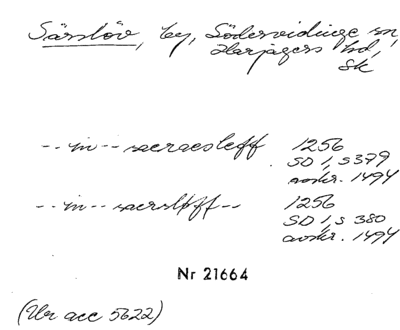 Särslöv, by, Södervidinge sn,
Harjagers hd,
Sk
--in--sacracsleff 1256
SD 1, s 379
avskr. 1494
--in--sacrslæff-- 1256
SD 1, s 380
avskr. 1494
Nr 21664
(Ur acc 5622)